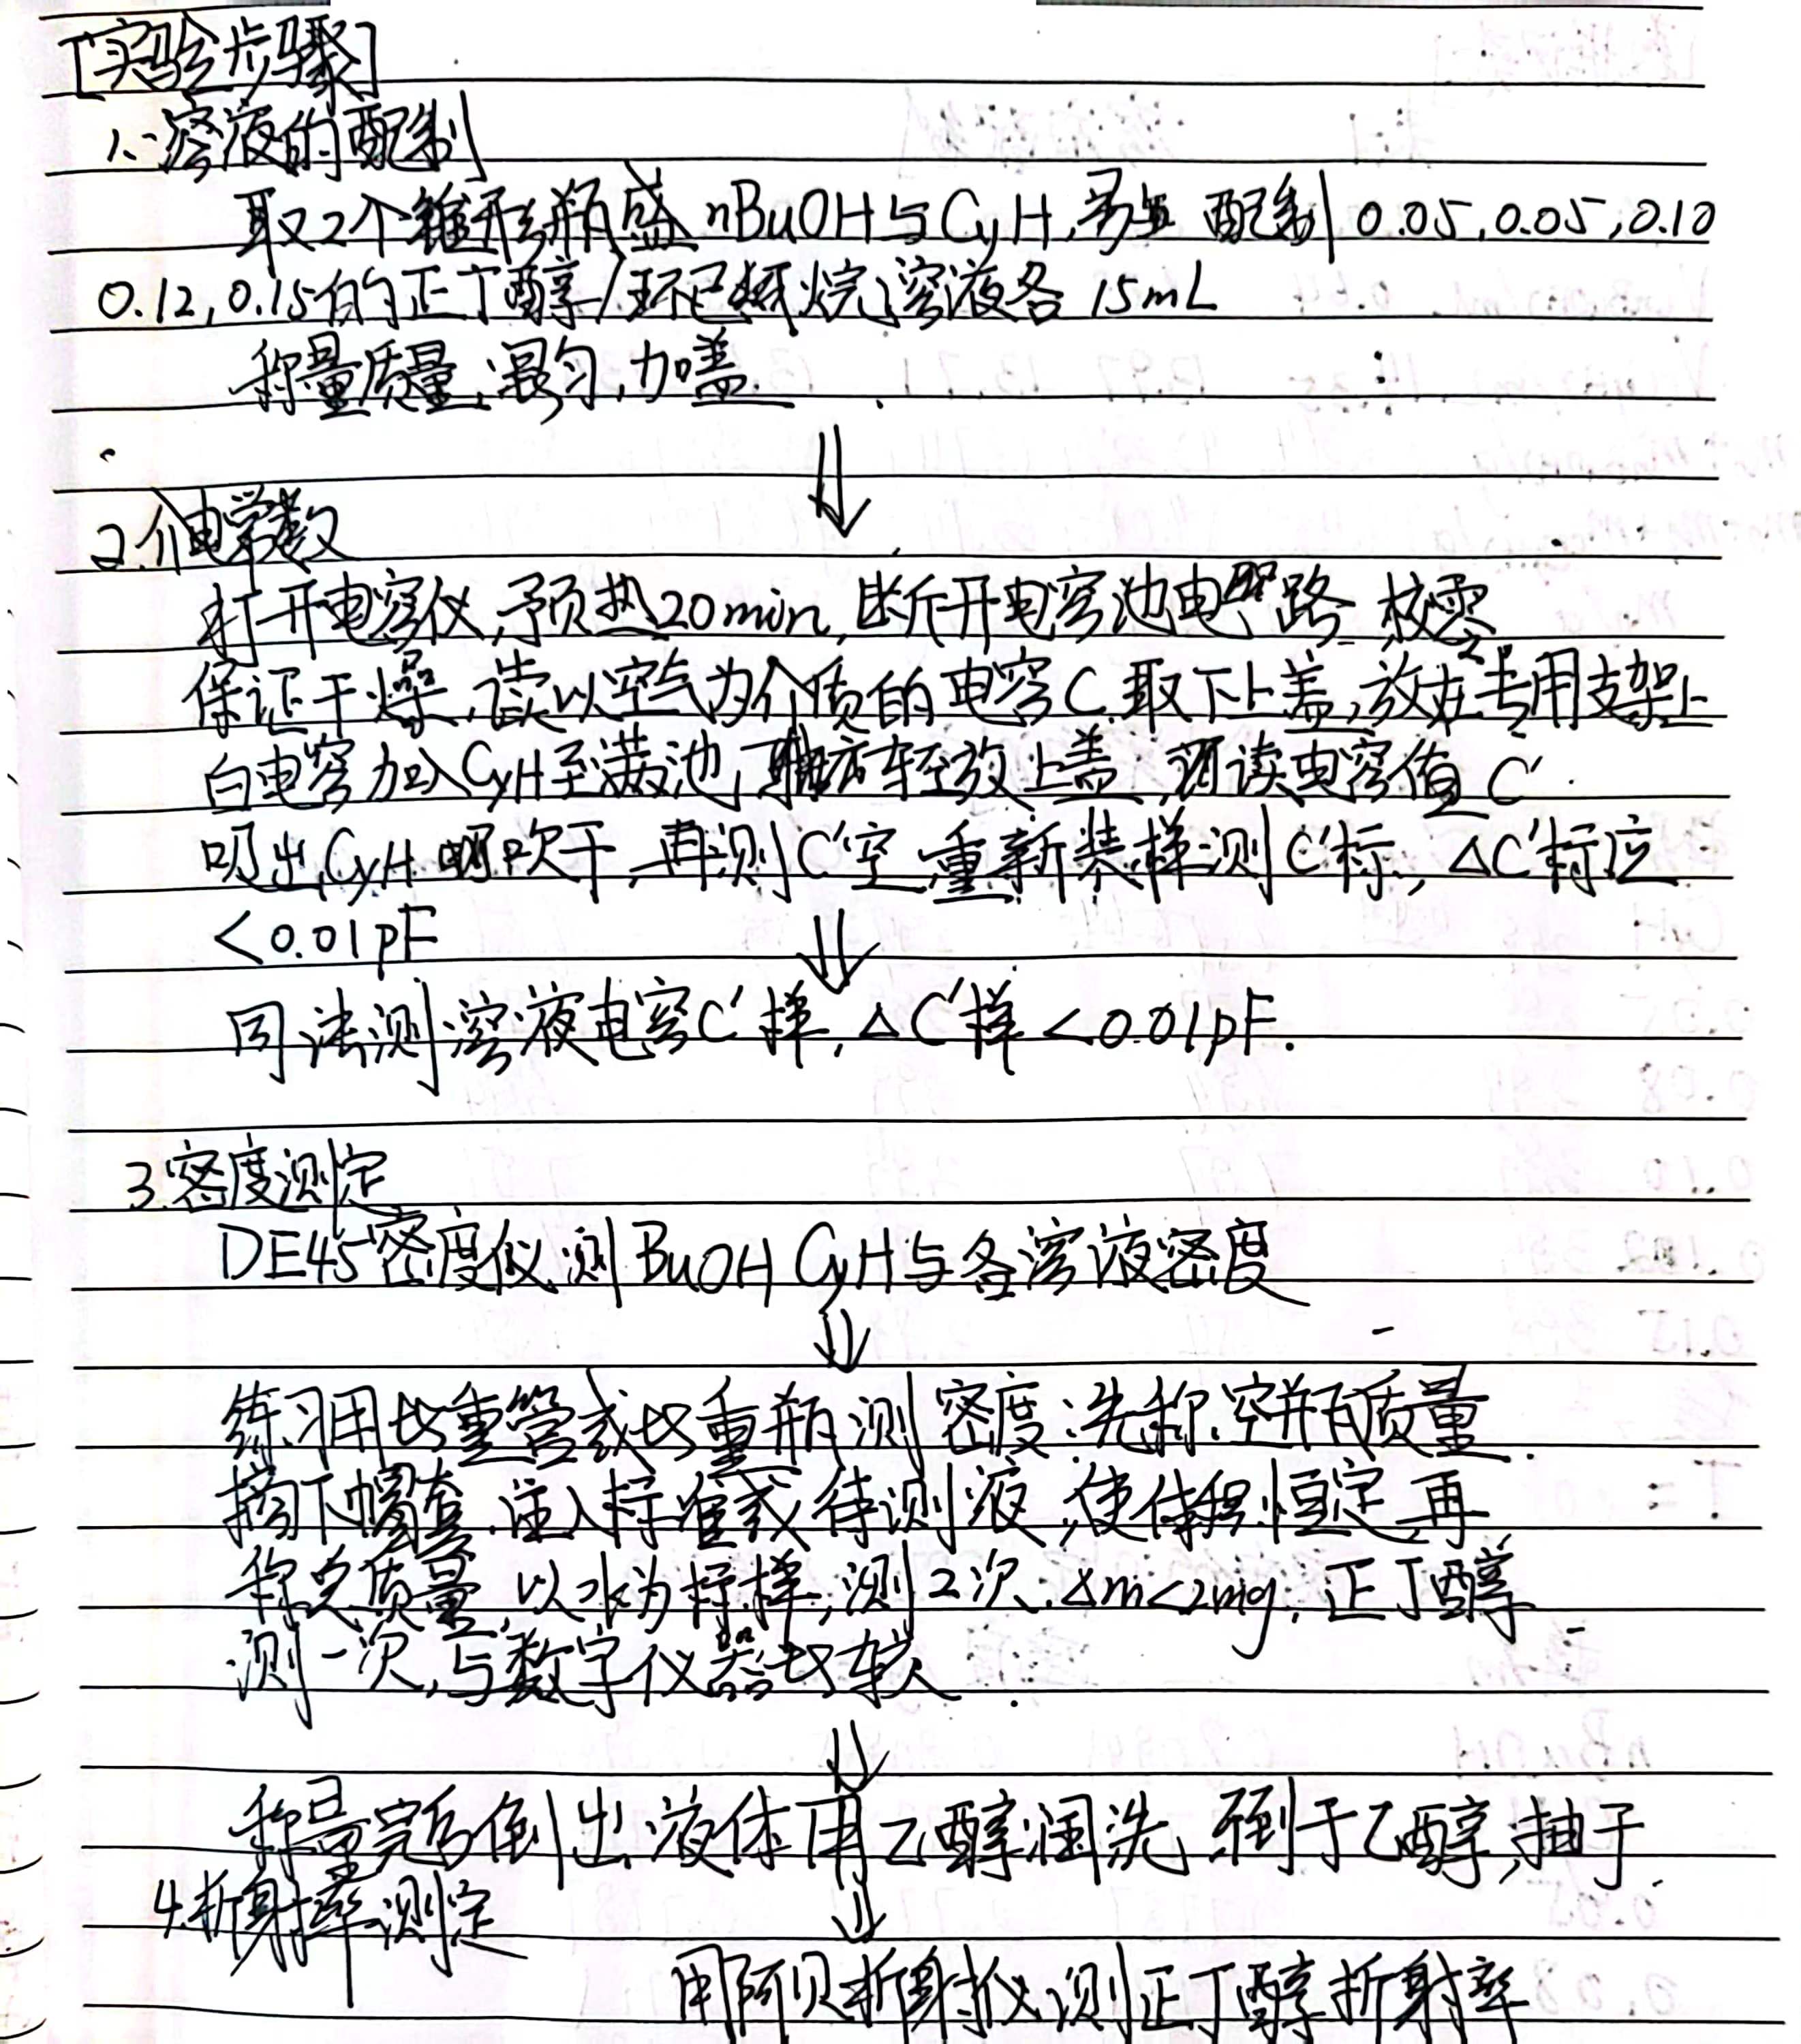 [实验步骤]
1. 溶液的配制
取2个锥形瓶盛nBuOH与CyH, 配制0.05, 0.05, 0.10
0.12, 0.15的正丁醇/环己烷溶液各15mL
称量质量,混匀,加盖.
2.介电常数
打开电容仪,预热20min,断开电容池电路 校零
保证干燥,读以空气为介质的电容C.取下上盖,放在专用支架上
向电容加入CyH至满池,轻放上盖,读电容值C'.
吸出CyH 吹干,再测C'空,重新装样测C'标, △C'标应
<0.01pF
同法测溶液电容C'样, △C'样<0.01pF.
3.密度测定
DE45密度仪测BuOH CyH与各溶液密度
练习用比重管或比重瓶测密度:先称空瓶质量.
摘下帽套,注入标准或待测液,使体积恒定,再
称总质量,以水为标样,测2次.△m<2mg,正丁醇
测一次,与数字仪器比较
称量完后倒出液体用乙醇润洗,倒干乙醇,抽干.
4.折射率测定
用阿贝折射仪测正丁醇折射率